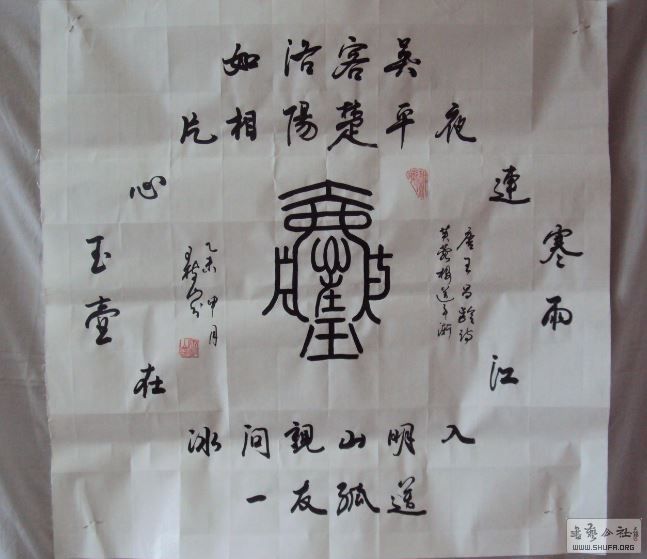 寒雨連江夜入吴
平明送客楚山孤
洛陽親友如相問
一片冰心在玉壺
唐王昌齡詩
芙蓉樓送辛漸
乙未甲月
書藝公社
WWW.SHUFA.ORG